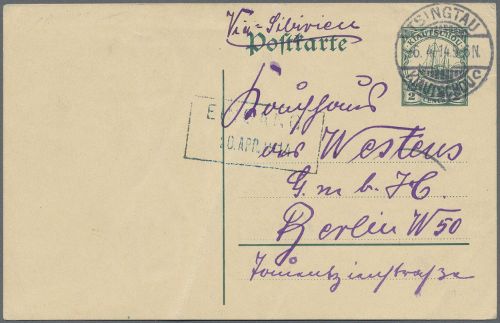 Via Sibirien
Postkarte
TSINGTAU
KIAUTSCHOU
6. 4. 14
KIAUTSCHOU
2 CENTS
Kaufhaus
des Westens
G. m. b. H.
Berlin W 50
Tauentzienstraße